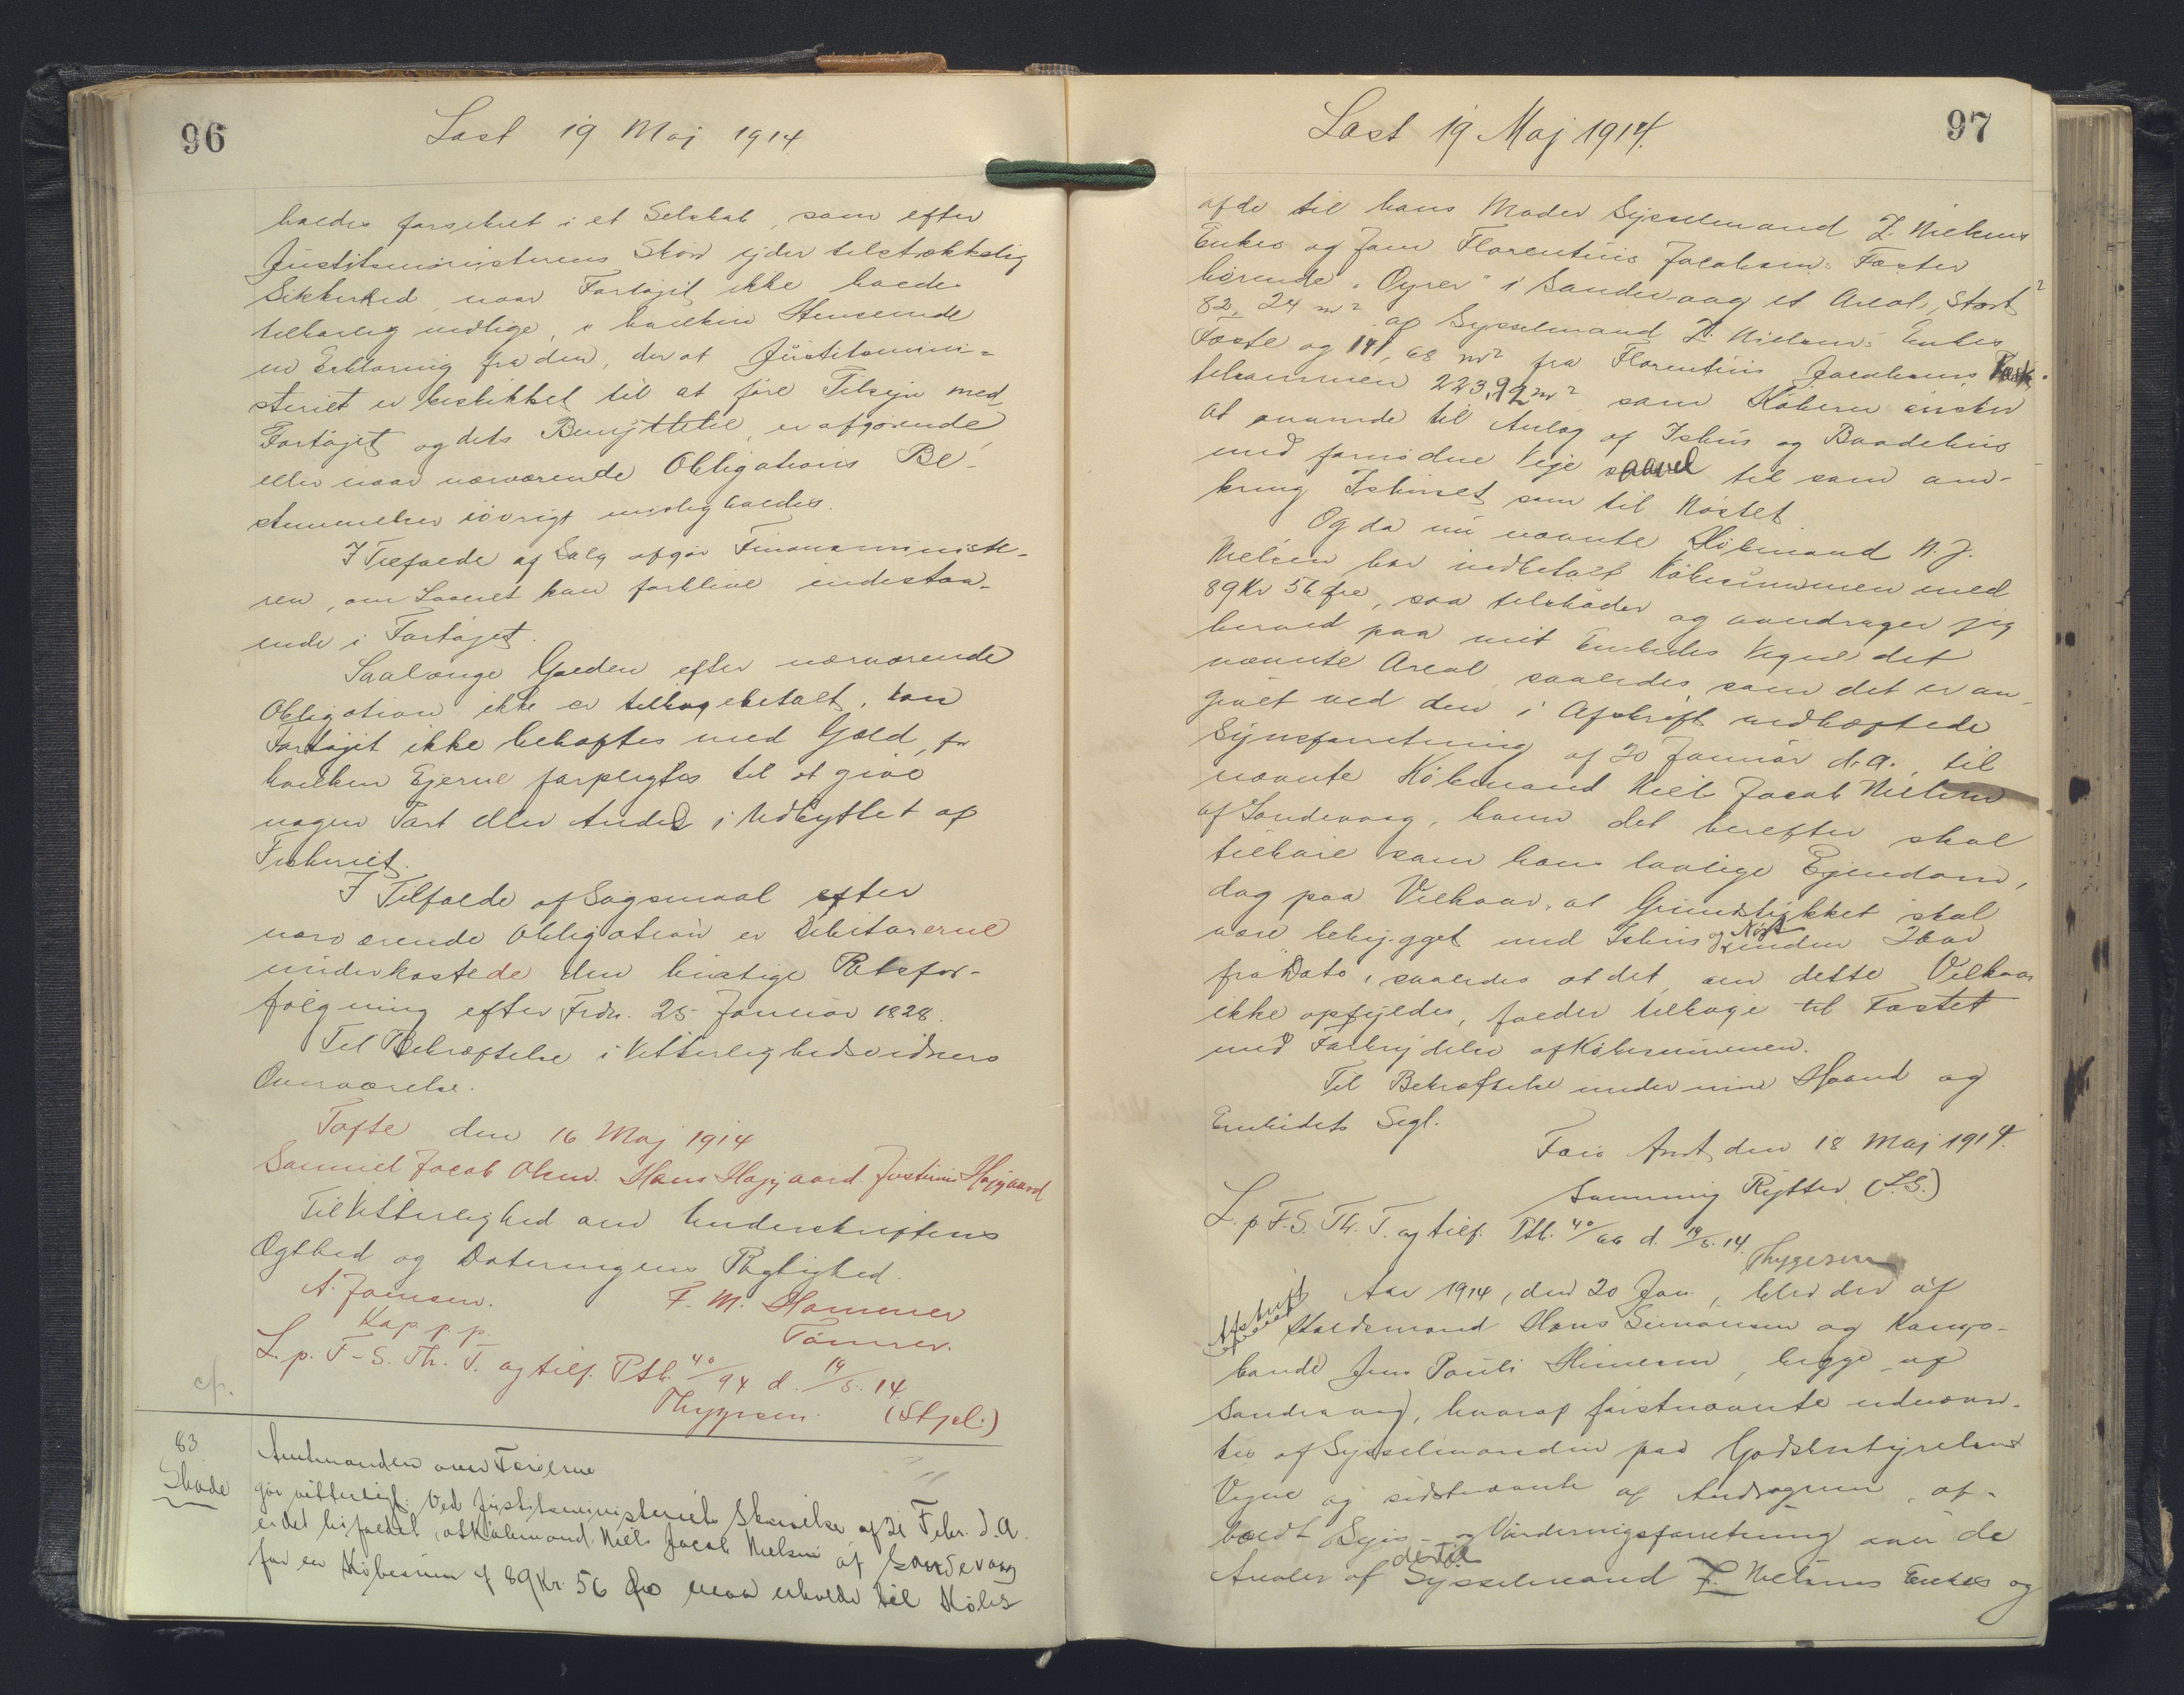 96
Læst 19 Maj 1914
holdes forsikret i et Selskab, som efter
Justitsministerens Skøn yder tilstrækkelig
Sikkerhed, naar Fartøjet ikke holdes
tilbørlig vedlige, i hvilken Henseende
en Erklæring fra den, der af Justitsmini-
steriet er beskikket til at føre Tilsyn med
Fartøjet og dets Benyttelse, er afgørende,
eller naar nærværende Obligations Be-
stemmelser iøvrigt misligholdes.
I Tilfælde af Salg afgør Finansministe-
ren, om Laanet kan forblive indestaa-
ende i Fartøjet.
Saalænge Gælden efter nærværende
Obligation ikke er tilbagebetalt, kan
Fartøjet ikke behæftes med Gæld, for
hvilken Ejerne forpligtes til at give
nogen Part eller Andel i Udbyttet af
Fiskeriet.
I Tilfælde af Søgsmaal efter
nærværende Obligation er Debitorerne
underkastede den hurtige Retsfor-
følgning efter Frdn. 25 Januar 1828.
Til Bekræftelse i Vitterlighedsvidners
Overværelse.
Tofte den 16 Maj 1914
Samuel Jacob Olsen. Hans Højgaard. Justinus Højgaard
Til Vitterlighed om Underskriftens
Ægthed og Dateringens Rigtighed.
A. Joensen. F. M. Hammer
Kap. p. p. Tømrer.
L. p. F-S. Th. T. og tilf. Ptb. 40/94 d. 19/5. 14.
Thygesen. (Stpl.)
cfr.
83
Skøde
Amtmanden over Færøerne
gør vitterligt: Ved Justitsministeriets Skrivelse af 21 Febr. d.A.
er det bifaldet, at Købmand Niels Jacob Nielsen af Sandevaag
for en Købesum af 89 Kr. 56 Øre maa erholde til Købs
97
Læst 19 Maj 1914.
af de til hans Moder Sysselmand Z. Nielsens
Enkes og Jens Florentius Jacobsens Fæster
hørende "Oyrer" i Sandevaag et Areal, stort
82,24 m² af Sysselmand Z. Nielsens Enkes
Fæste og 141,68 m² fra Florentius Jacobsens Fæste
tilsammen 223,92 m² som Køberen ønsker
at anvende til Anlæg af Ishus og Baadehus
med fornødne Veje saavel til som om-
kring Ishuset som til Nøstet.
Og da nu nævnte Købmand N. J.
Nielsen har indbetalt Købesummen med
89 Kr 56 Øre, saa tilskøder og overdrager jeg
herved paa mit Embedes Vegne det
nævnte Areal, saaledes som det er an-
givet ved den i Afskrift vedhæftede
Synsforretning af 20 Januar d.A. til
nævnte Købmand Niels Jacob Nielsen
af Sandevaag, hvem det herefter skal
tilhøre som hans lovlige Ejendom,
dog paa Vilkaar, at Grundstykket skal
være bebygget med Ishus og Nøst inden 2 Aar
fra Dato, saaledes at det, om dette Vilkaar
ikke opfyldes, falder tilbage til Fæstet
med Fortabelse af Købesummen.
Til Bekræftelse under min Haand og
Embedets Segl.
Færø Amt, den 18 Maj 1914.
Svenning Rytter (L.S.)
L. p. F.S. Th. T. og tilf. Ptb. 40/66 d. 19/5. 14.
Thygesen
Afskrift
Aar 1914, den 20 Jan., blev der af
Holdsmand Hans Simonsen og Kongs-
bonde Jens Pauli Heinesen, begge af
Sandevaag, hvoraf førstnævnte udnævn-
tes af Sysselmanden paa Godsbestyrelsens
Vegne og sidstnævnte af Andrageren, af-
holdt Syns- og Vurderingsforretning over de
Arealer af de til Sysselmand Z. Nielsens Enkes og